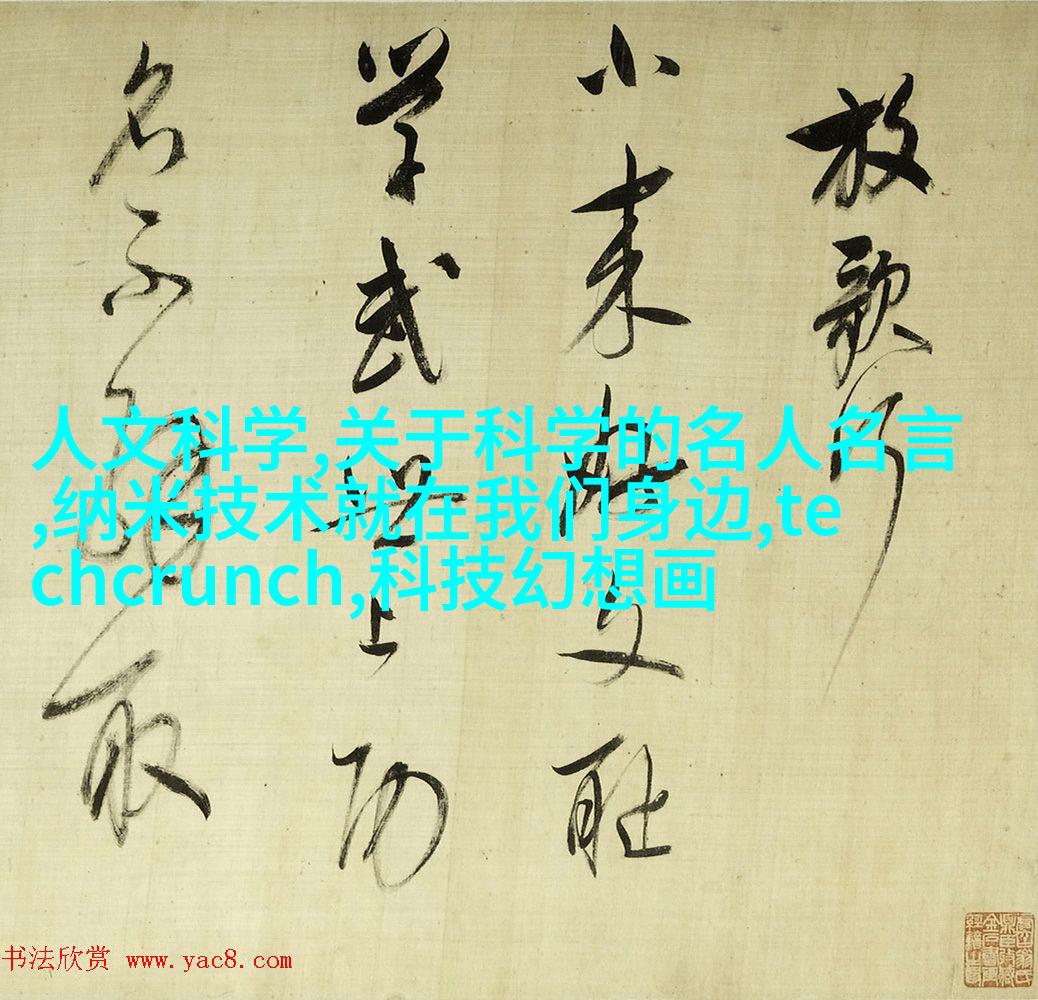 放歌行
小来好文耻
学武世上功
名不解取
人文科学,关于科学的名人名言
,纳米技术就在我们身边,te
chcrunch,科技幻想画
书法欣赏 www.yac8.com